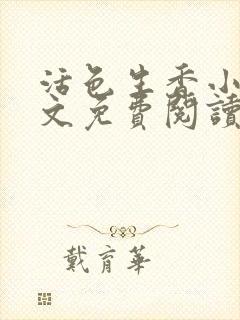 活色生香小
文免費閱讀
戴育華